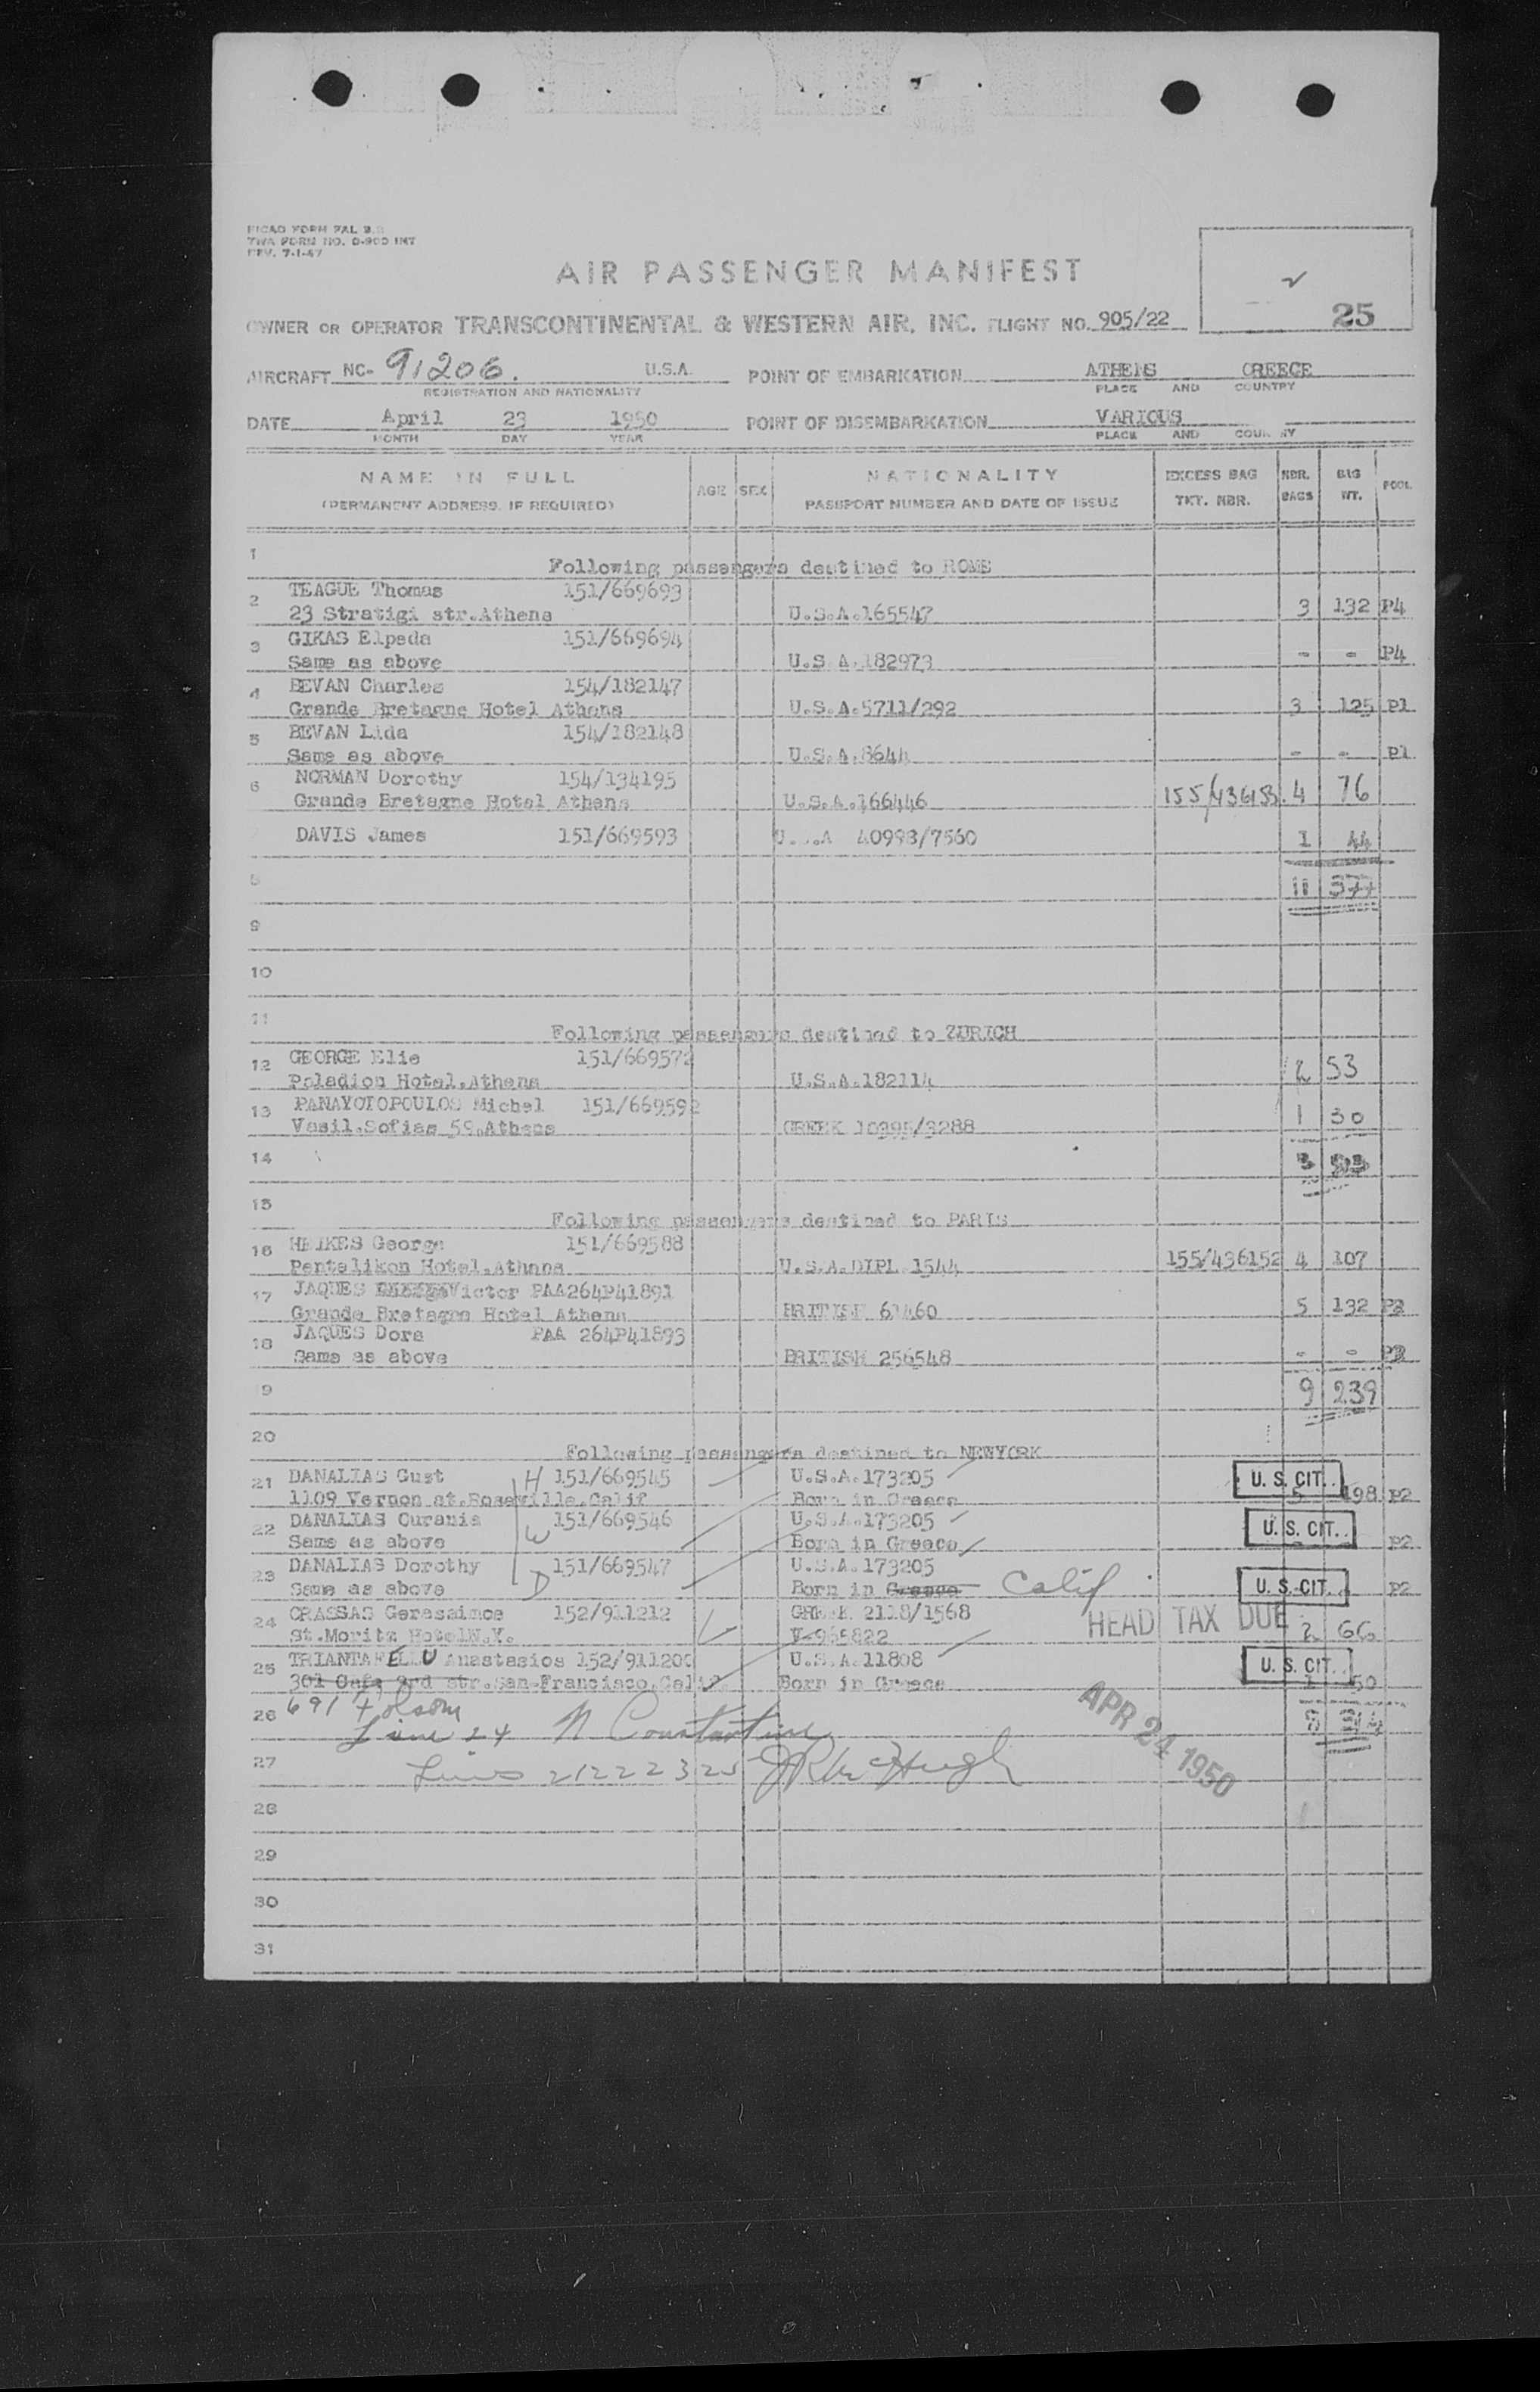 TWA FORM NO. 0-900 INT
REV. 7-1-47
AIR PASSENGER MANIFEST
25
OWNER OR OPERATOR TRANSCONTINENTAL & WESTERN AIR, INC. FLIGHT NO. 905/22
AIRCRAFT NC- 91206. U.S.A. POINT OF EMBARKATION ATHENS GREECE
REGISTRATION AND NATIONALITY PLACE AND COUNTRY
DATE April 23 1950 POINT OF DISEMBARKATION VARIOUS
MONTH DAY YEAR PLACE AND COUNTRY
NAME IN FULL AGE SEX NATIONALITY EXCESS BAG NBR. BAG POOL
(PERMANENT ADDRESS, IF REQUIRED) PASSPORT NUMBER AND DATE OF ISSUE TKT. NBR. BAGS WT.
1 Following passengers destined to ROME
2 TEAGUE Thomas 151/669693
23 Stratigi str.Athens U.S.A.165547 3 132 P4
3 GIKAS Elpeda 151/669694
Same as above U.S.A.182973 - - P4
4 BEVAN Charles 154/182147
Grande Bretagne Hotel Athens U.S.A.5711/292 3 125 P1
5 BEVAN Lida 154/182148
Same as above U.S.A.8644 - - P1
6 NORMAN Dorothy 154/134195
Grande Bretagne Hotel Athens U.S.A.166446 155/436153 4 76
DAVIS James 151/669593 40998/7560 1 44
8 11 377
9
10
11 Following passengers destined to ZURICH
12 GEORGE Elie 151/669572
Poladion Hotel.Athens U.S.A.182114 2 53
13 PANAYOTOPOULOS Michel 151/669592
Vasil.Sofias 59.Athens GREEK 10395/3288 1 30
14 3 83
15 Following passengers destined to PARIS
16 HEIKES George 151/669588
Pentelikon Hotel.Athens U.S.A.DIPL 1544 155/436152 4 107
17 JAQUES Victor PAA264P41891
Grande Bretagne Hotel Athens BRITISH 61460 5 132 P3
18 JAQUES Dora PAA 264P41893
Same as above BRITISH 256548 - - P3
19 9 239
20 Following passengers destined to NEWYORK
21 DANALIAS Gust H 151/669545 U.S.A.173205 U. S. CIT.
1109 Vernon st.Roseville.Calif Born in Greece 5 198 P2
22 DANALIAS Ourania W 151/669546 U.S.A.173205 U. S. CIT.
Same as above Born in Greece P2
23 DANALIAS Dorothy D 151/669547 U.S.A.173205
Same as above Born in Greece Calif U. S. CIT. P2
24 CRASSAS Gerassimos 152/911212 GREEK 2118/1568 HEAD TAX DUE
St.Moritz HotelN.Y. V-965822 2 66
25 TRIANTAFELLU Anastasios 152/911200 U.S.A.11808 U. S. CIT.
301 Cafe 3rd str.San-Francisco.Calif Born in Greece 1 50
26 691 Folsom 8 314
Line 24 N Constantine
APR 24 1950
27 Lines 21 22 23 25 JR McHugh
28
29
30
31